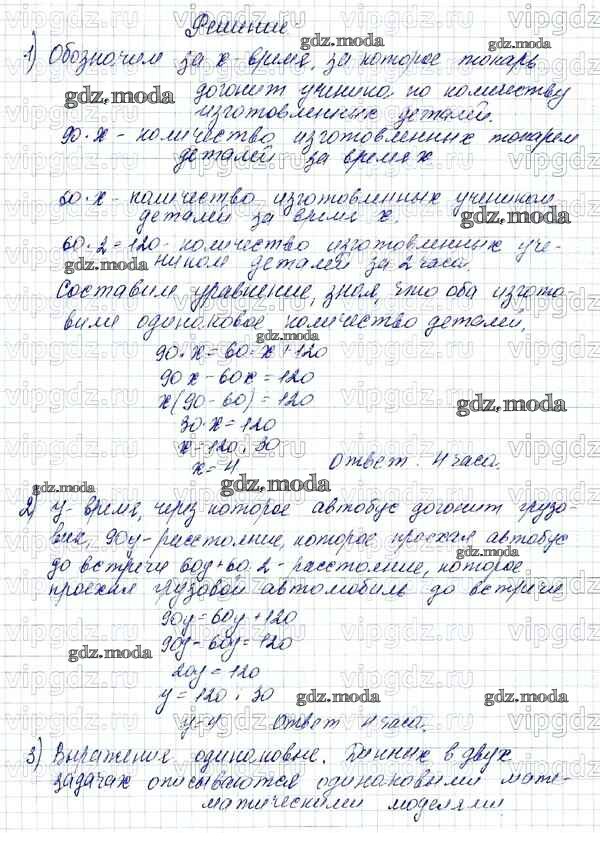 Решение
1) Обозначим за x - время, за которое токарь
догонит ученика по количеству
изготовленных деталей.
90·x - количество изготовленных токарем
деталей за время x
60·x - количество изготовленных учеником
деталей за время x.
60·2=120 - количество изготовленных уче-
ником деталей за 2 часа.
Составим уравнение, зная, что оба изгото-
вили одинаковое количество деталей.
90·x=60·x+120
90x-60x=120
x(90-60)=120
30·x=120
x=120:30
x=4 Ответ: 4 часа.
2) y - время, через которое автобус догонит грузо-
вик, 90y - расстояние, которое проехал автобус
до встречи 60y+60·2 - расстояние, которое
проехал грузовой автомобиль до встречи
90y=60y+120
90y-60y=120
20y=120
y=120:30
y=4 Ответ 4 часа.
3) Выражения одинаковые. Данных в двух
задачах описываются одинаковыми мате-
матическими моделями
gdz.moda
vipgdz.ru